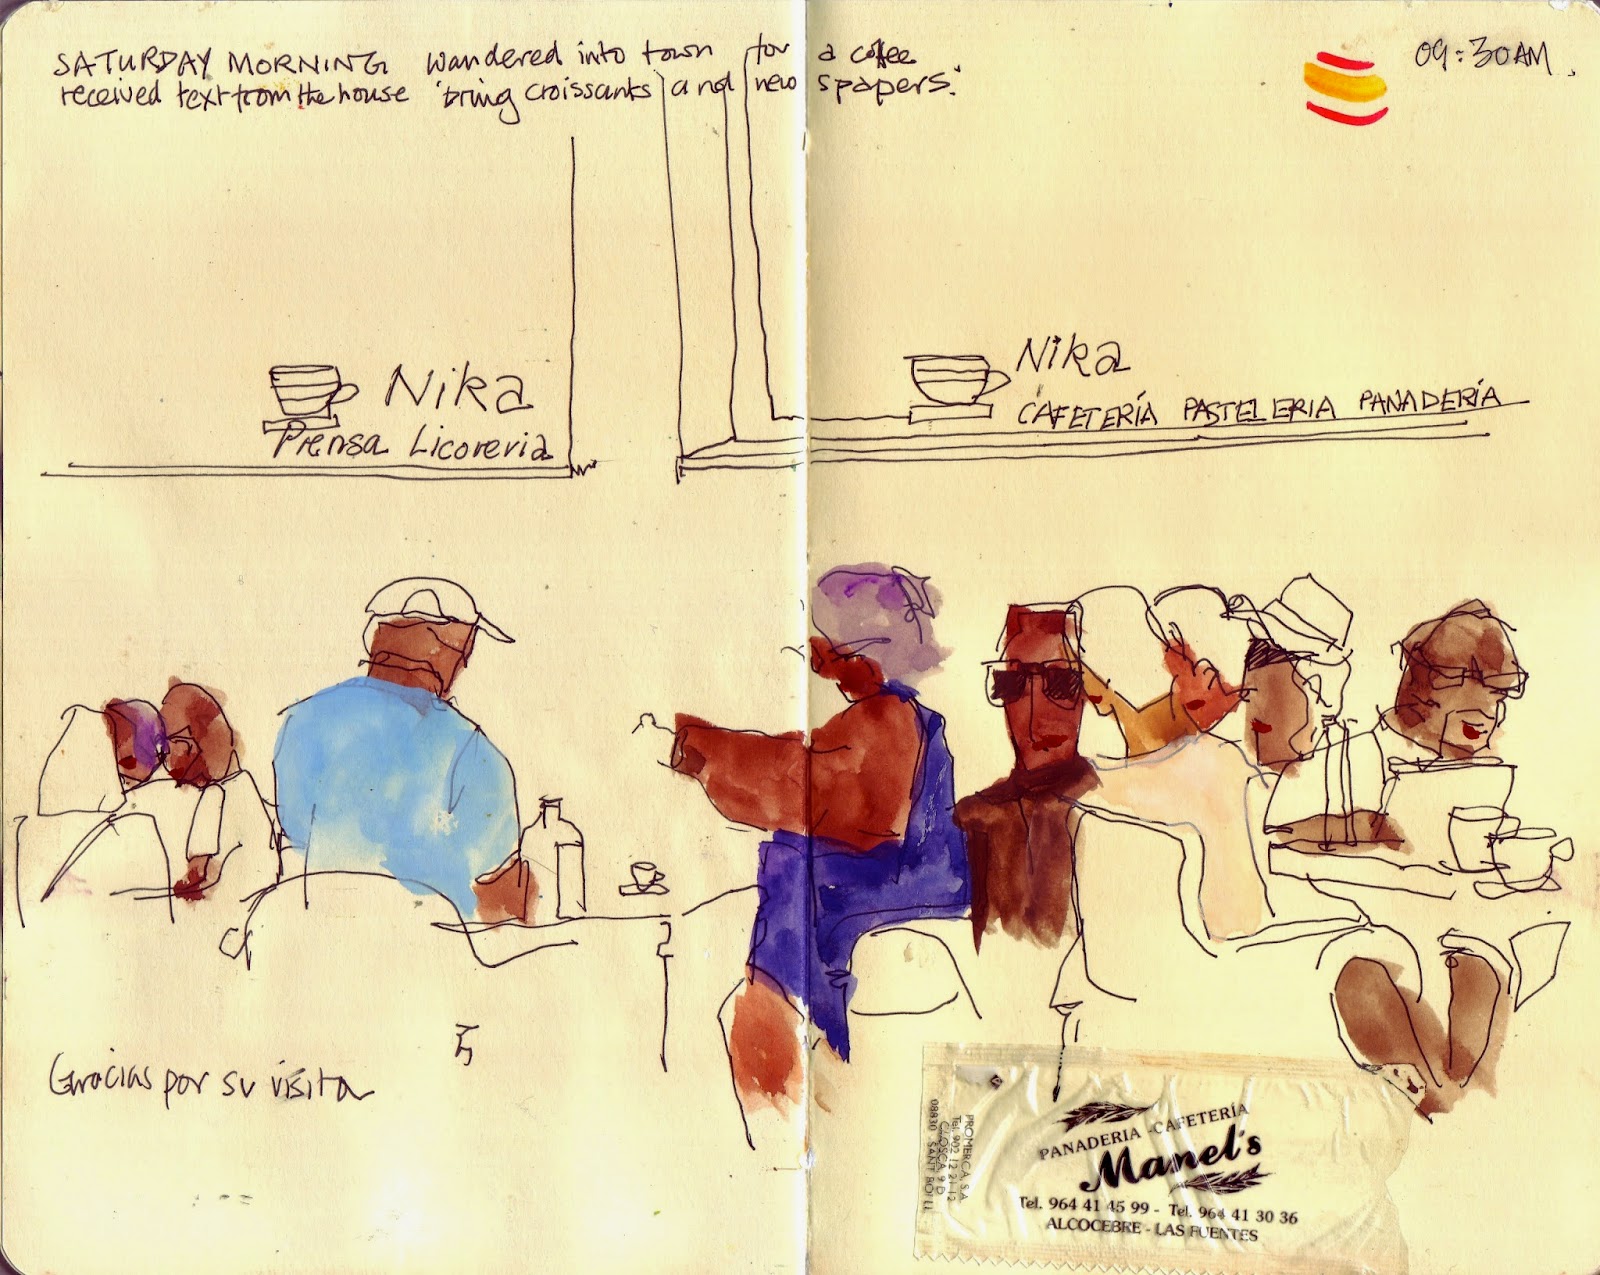 SATURDAY MORNING wandered into town for a coffee
received text from the house 'bring croissants and newspapers.'
09:30AM.
Nika
Prensa Licoreria
Nika
CAFETERÍA PASTELERIA PANADERÍA
Gracias por su visita
PANADERIA - CAFETERÍA
Manel's
Tel. 964 41 45 99 - Tel. 964 41 30 36
ALCOCEBRE - LAS FUENTES
PROMERCA, S.A.
Tel. 902 12 21 12
C/OSCA, 9 D
08830 SANT BOI LL